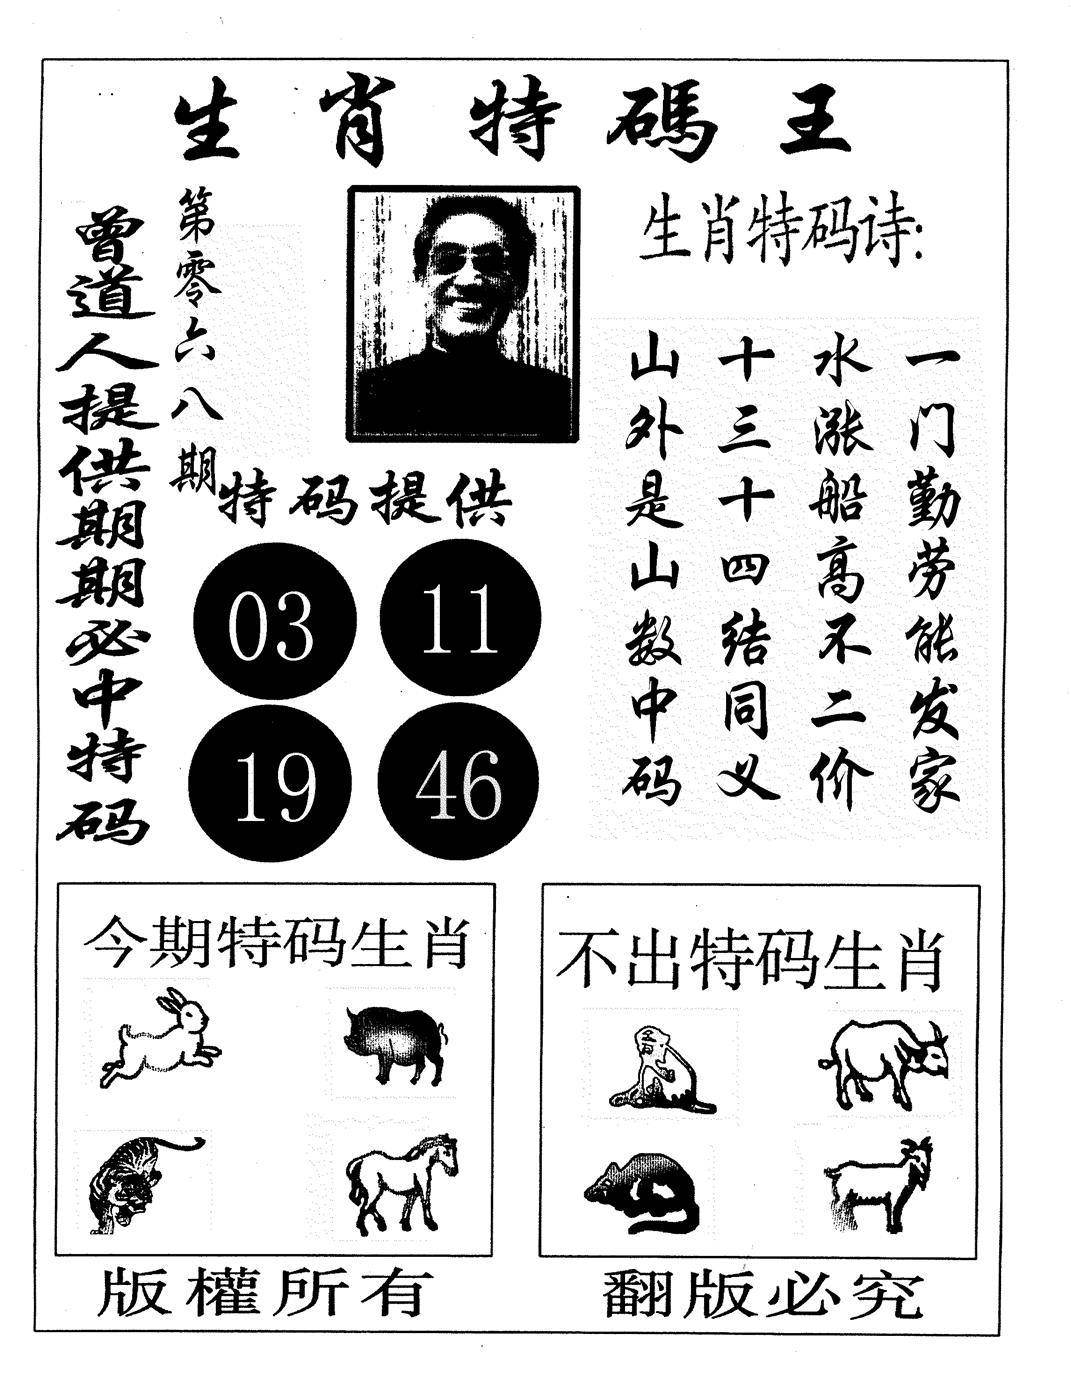 生肖特碼王
曾道人提供期期必中特码
第零六八期
特码提供
03
11
19
46
生肖特码诗:
一门勤劳能发家
水涨船高不二价
十三十四结同义
山外是山数中码
今期特码生肖
不出特码生肖
版權所有
翻版必究